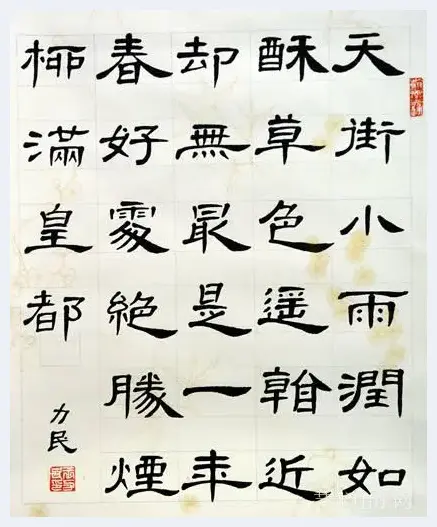 天街小雨潤如
酥草色遥看近
却無最是一年
春好處絶勝煙
柳滿皇都
力民